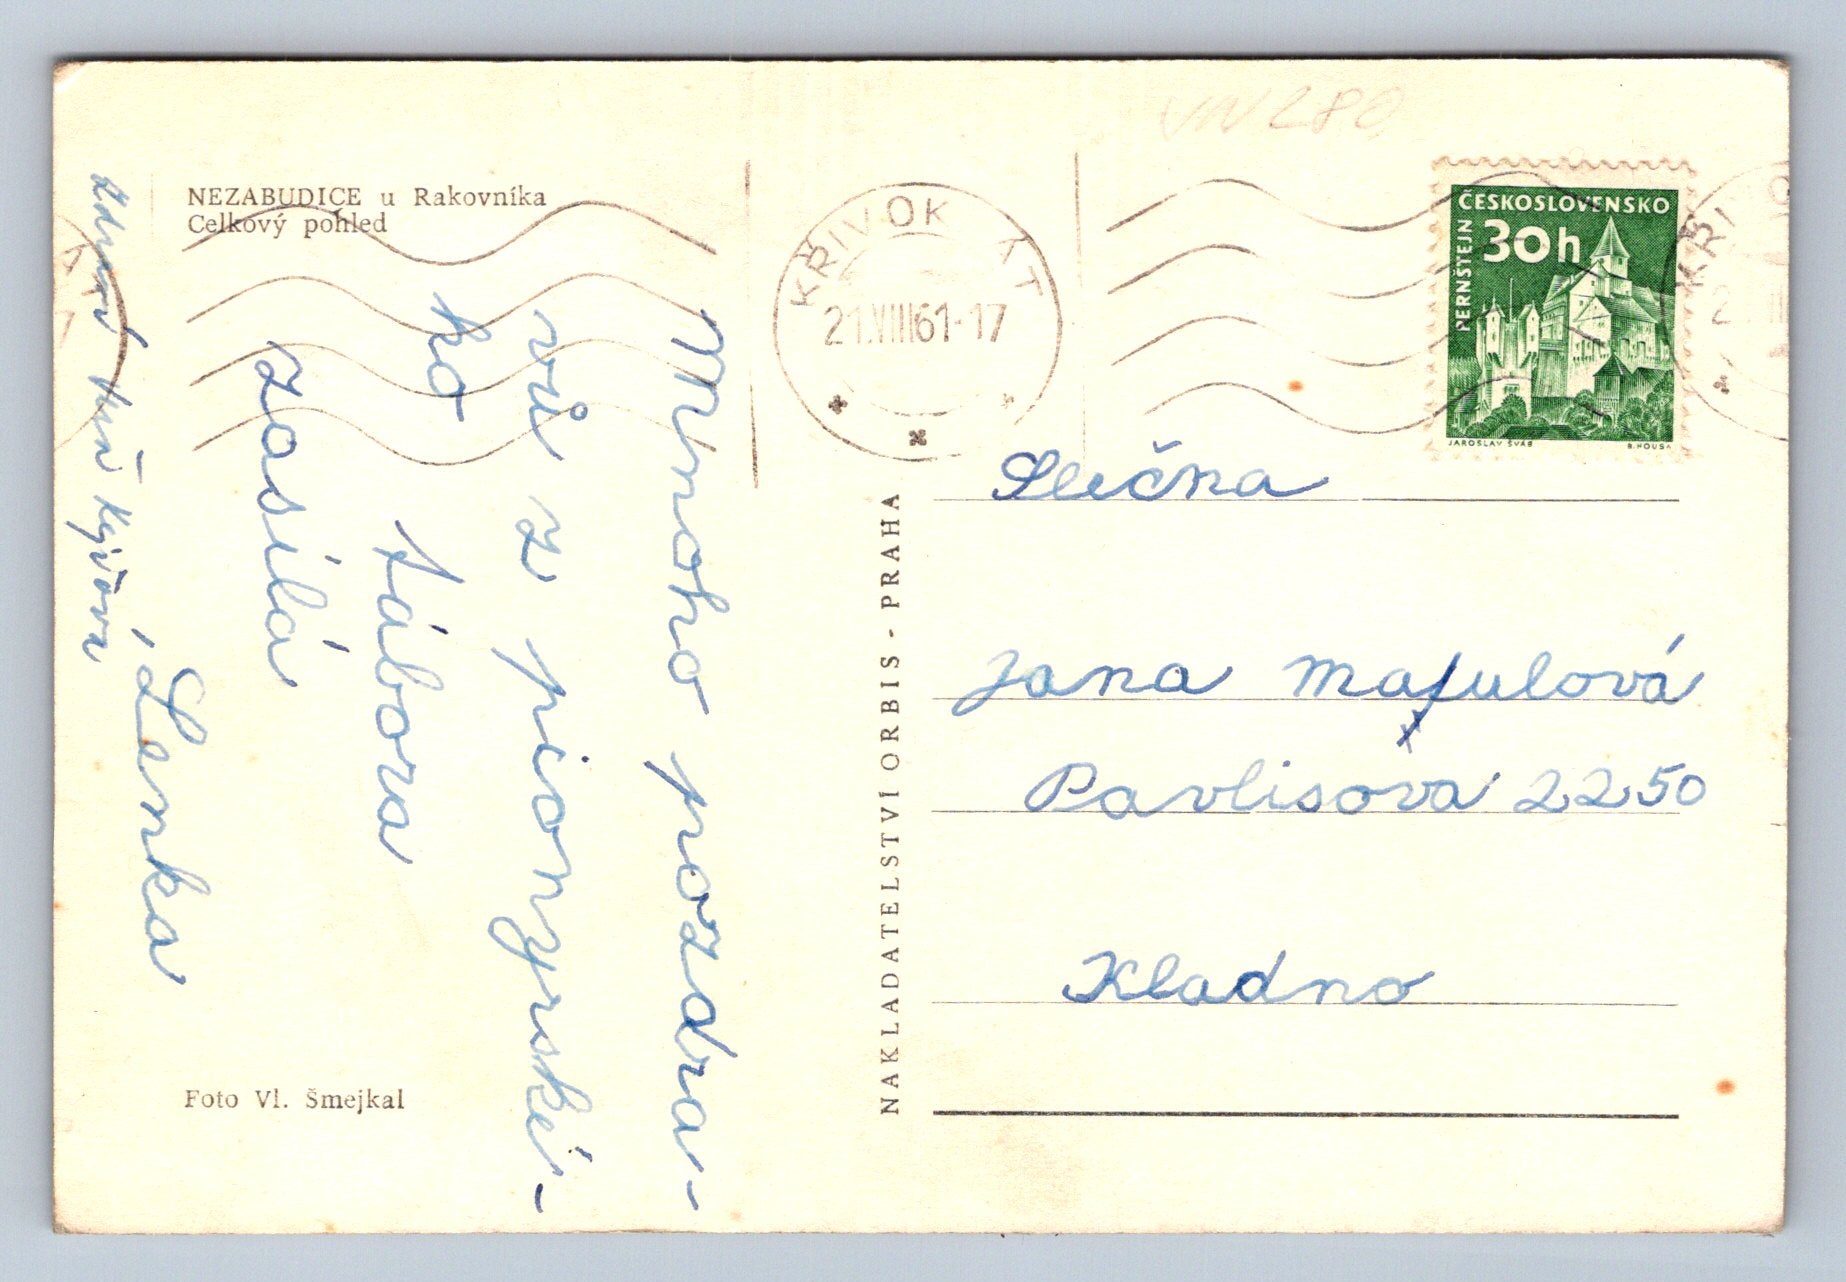 NEZABUDICE u Rakovníka
Celkový pohled
Mnoho pozdra-
vů z pionýrské-
ho
tábora
zasílá
Lenka
Foto Vl. Šmejkal
NAKLADATELSTVÍ ORBIS - PRAHA
KŘIVOKLÁT
21.VIII 61-17
ČESKOSLOVENSKO
30h
PERNŠTEJN
JAROSLAV ŠVÁB
B. HOUSA
Slečna
Jana
Pavlisova 2250
Kladno